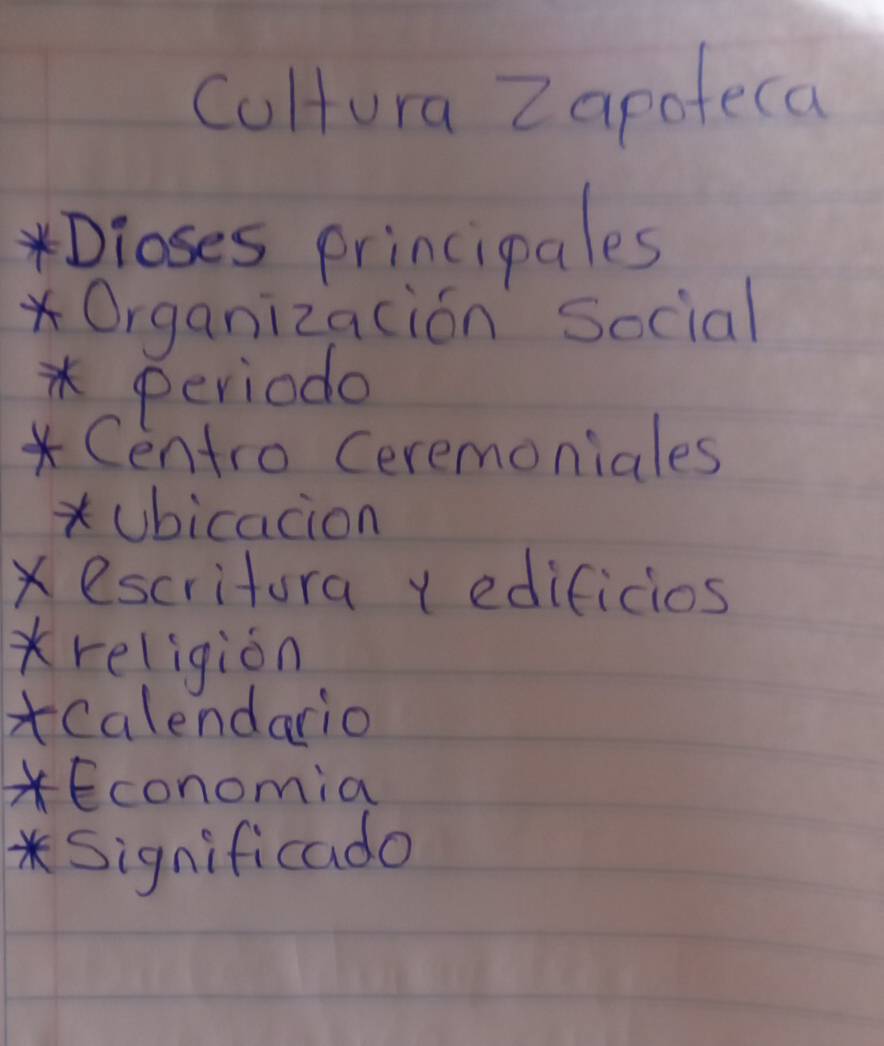 Cultura Zapoteca
*Dioses principales
*Organización Social
* periodo
*Centro Ceremoniales
*Ubicacion
*escritura y edificios
*religión
*Calendario
*Economia
*Significado